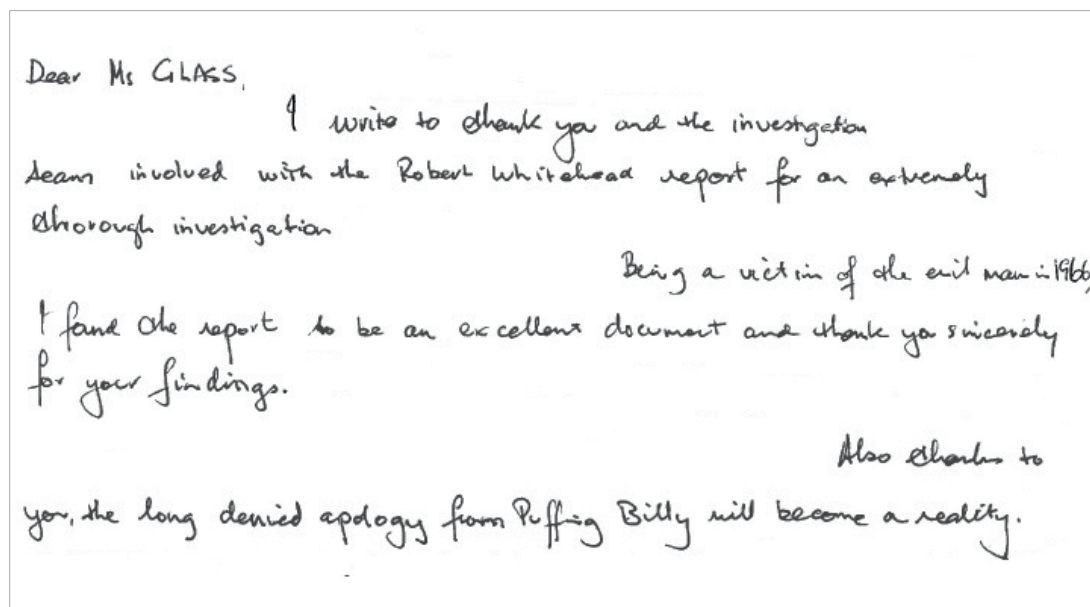 Dear Ms GLASS,
I write to thank you and the investigation
team involved with the Robert Whitehead report for an extremely
thorough investigation
Being a victim of the evil man in 1966,
I found the report to be an excellent document and thank you sincerely
for your findings.
Also thanks to
you, the long denied apology from Puffing Billy will become a reality.